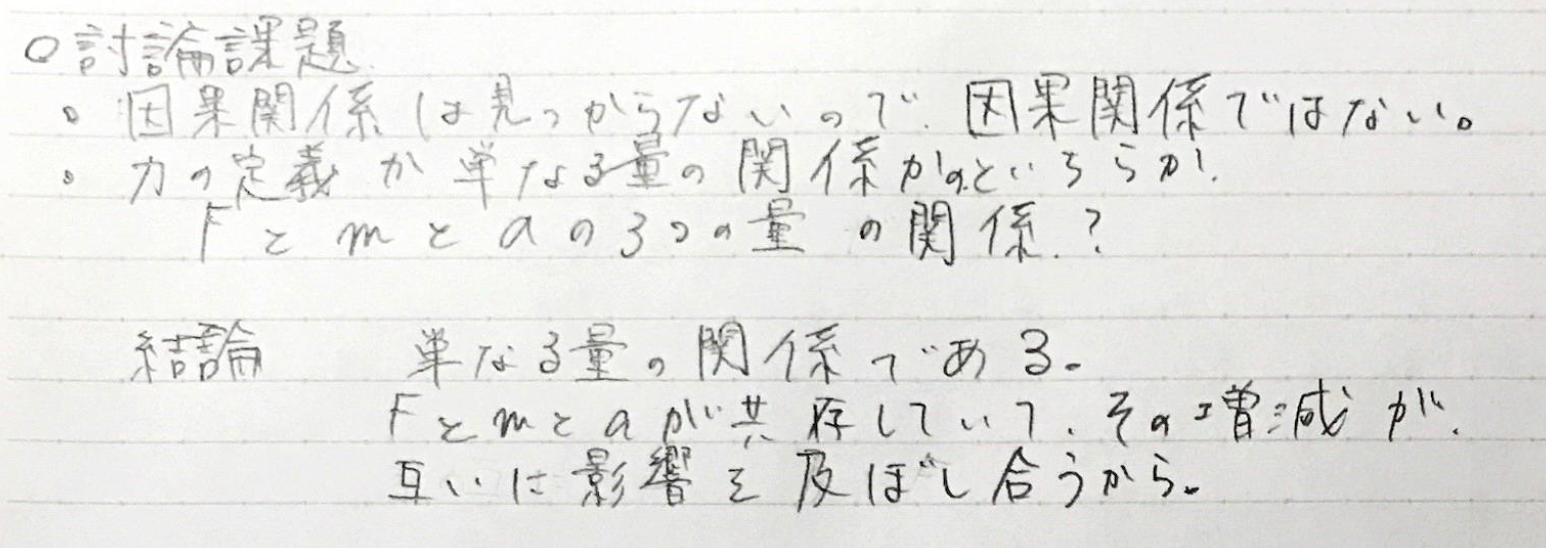 ○討論課題
。因果関係は見つからないので、因果関係ではない。
。力の定義か単なる量の関係かのどちらか、
FとmとaのЗつの量の関係?
結論 単なる量の関係である。
Fとmとaが共存していて、その増減が、
互いに影響を及ぼし合うから。